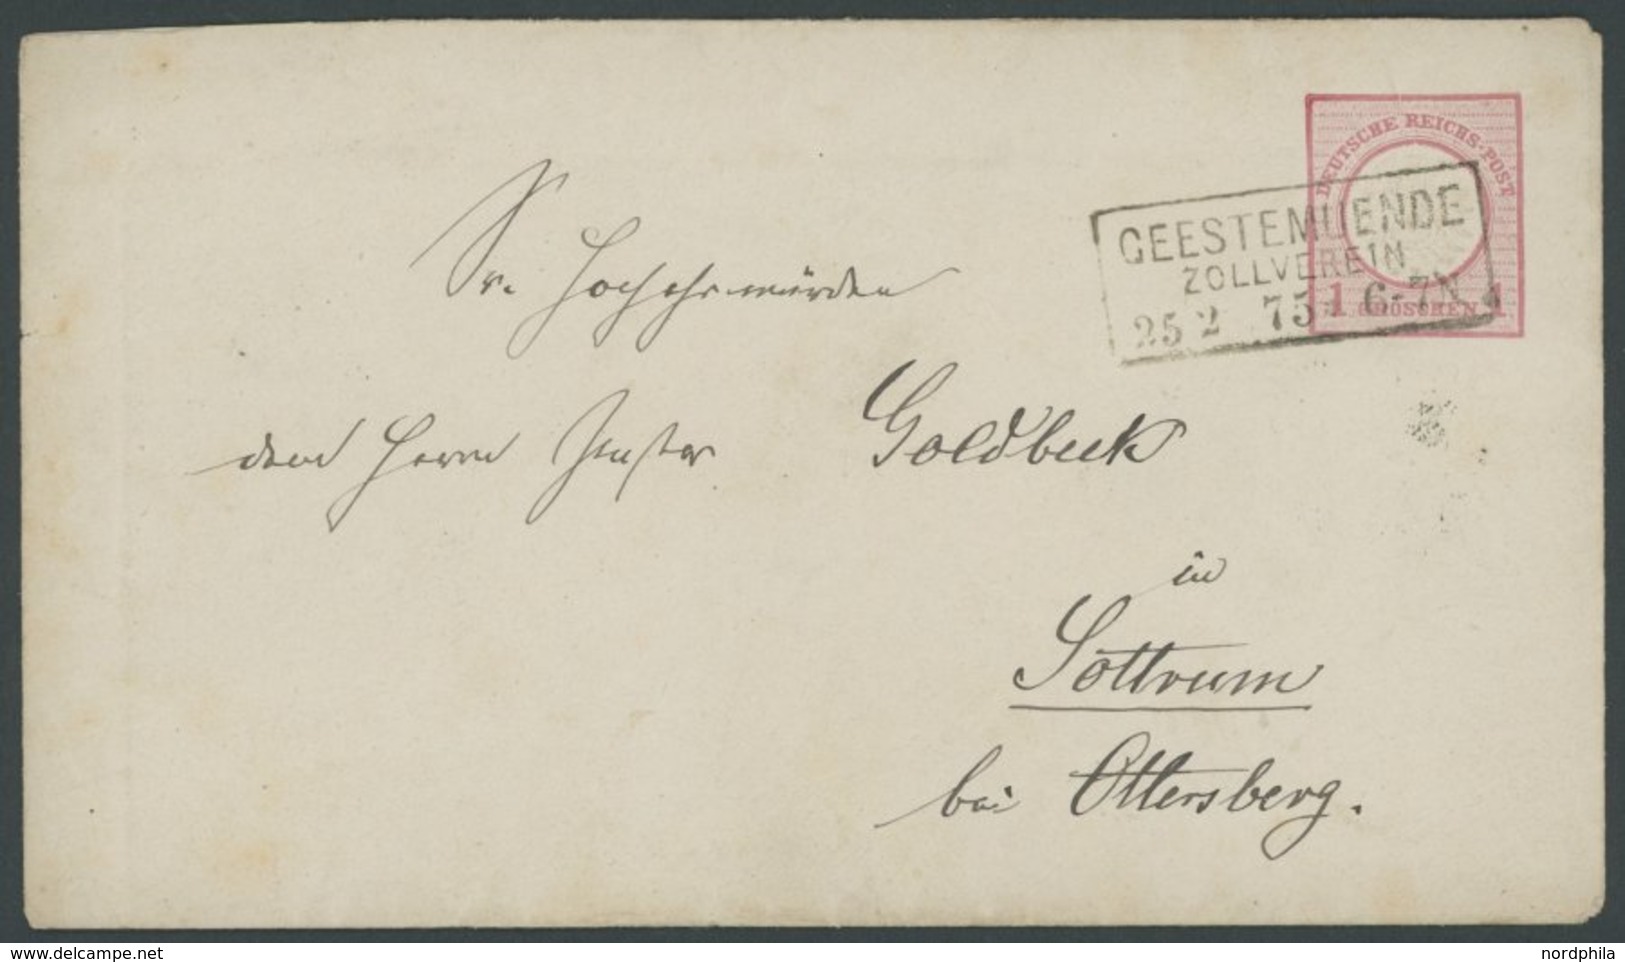 DEUTSCHE REICHS-POST
1 GROSCHEN 1
GEESTEMUENDE
ZOLLVEREIN
25 2 75 6-7N
Sr. Hochehrwürden
dem Herrn Pastor Goldbeck
in
Sottrum
bei Ottersberg.
www.delcampe.net
nordphila